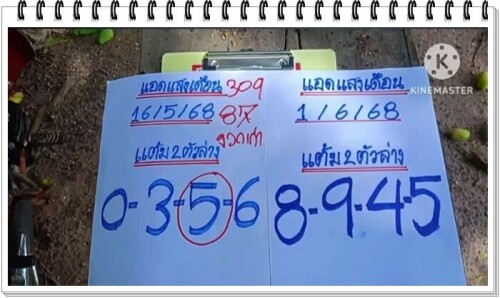 แอดแสงเดือน 309
16/5/68 87
งวดเก่า
แต้ม 2 ตัวล่าง
0-3-5-6
แอดแสงเดือน
1/6/68
แต้ม 2 ตัวล่าง
8-9-4-5
K
KINEMASTER